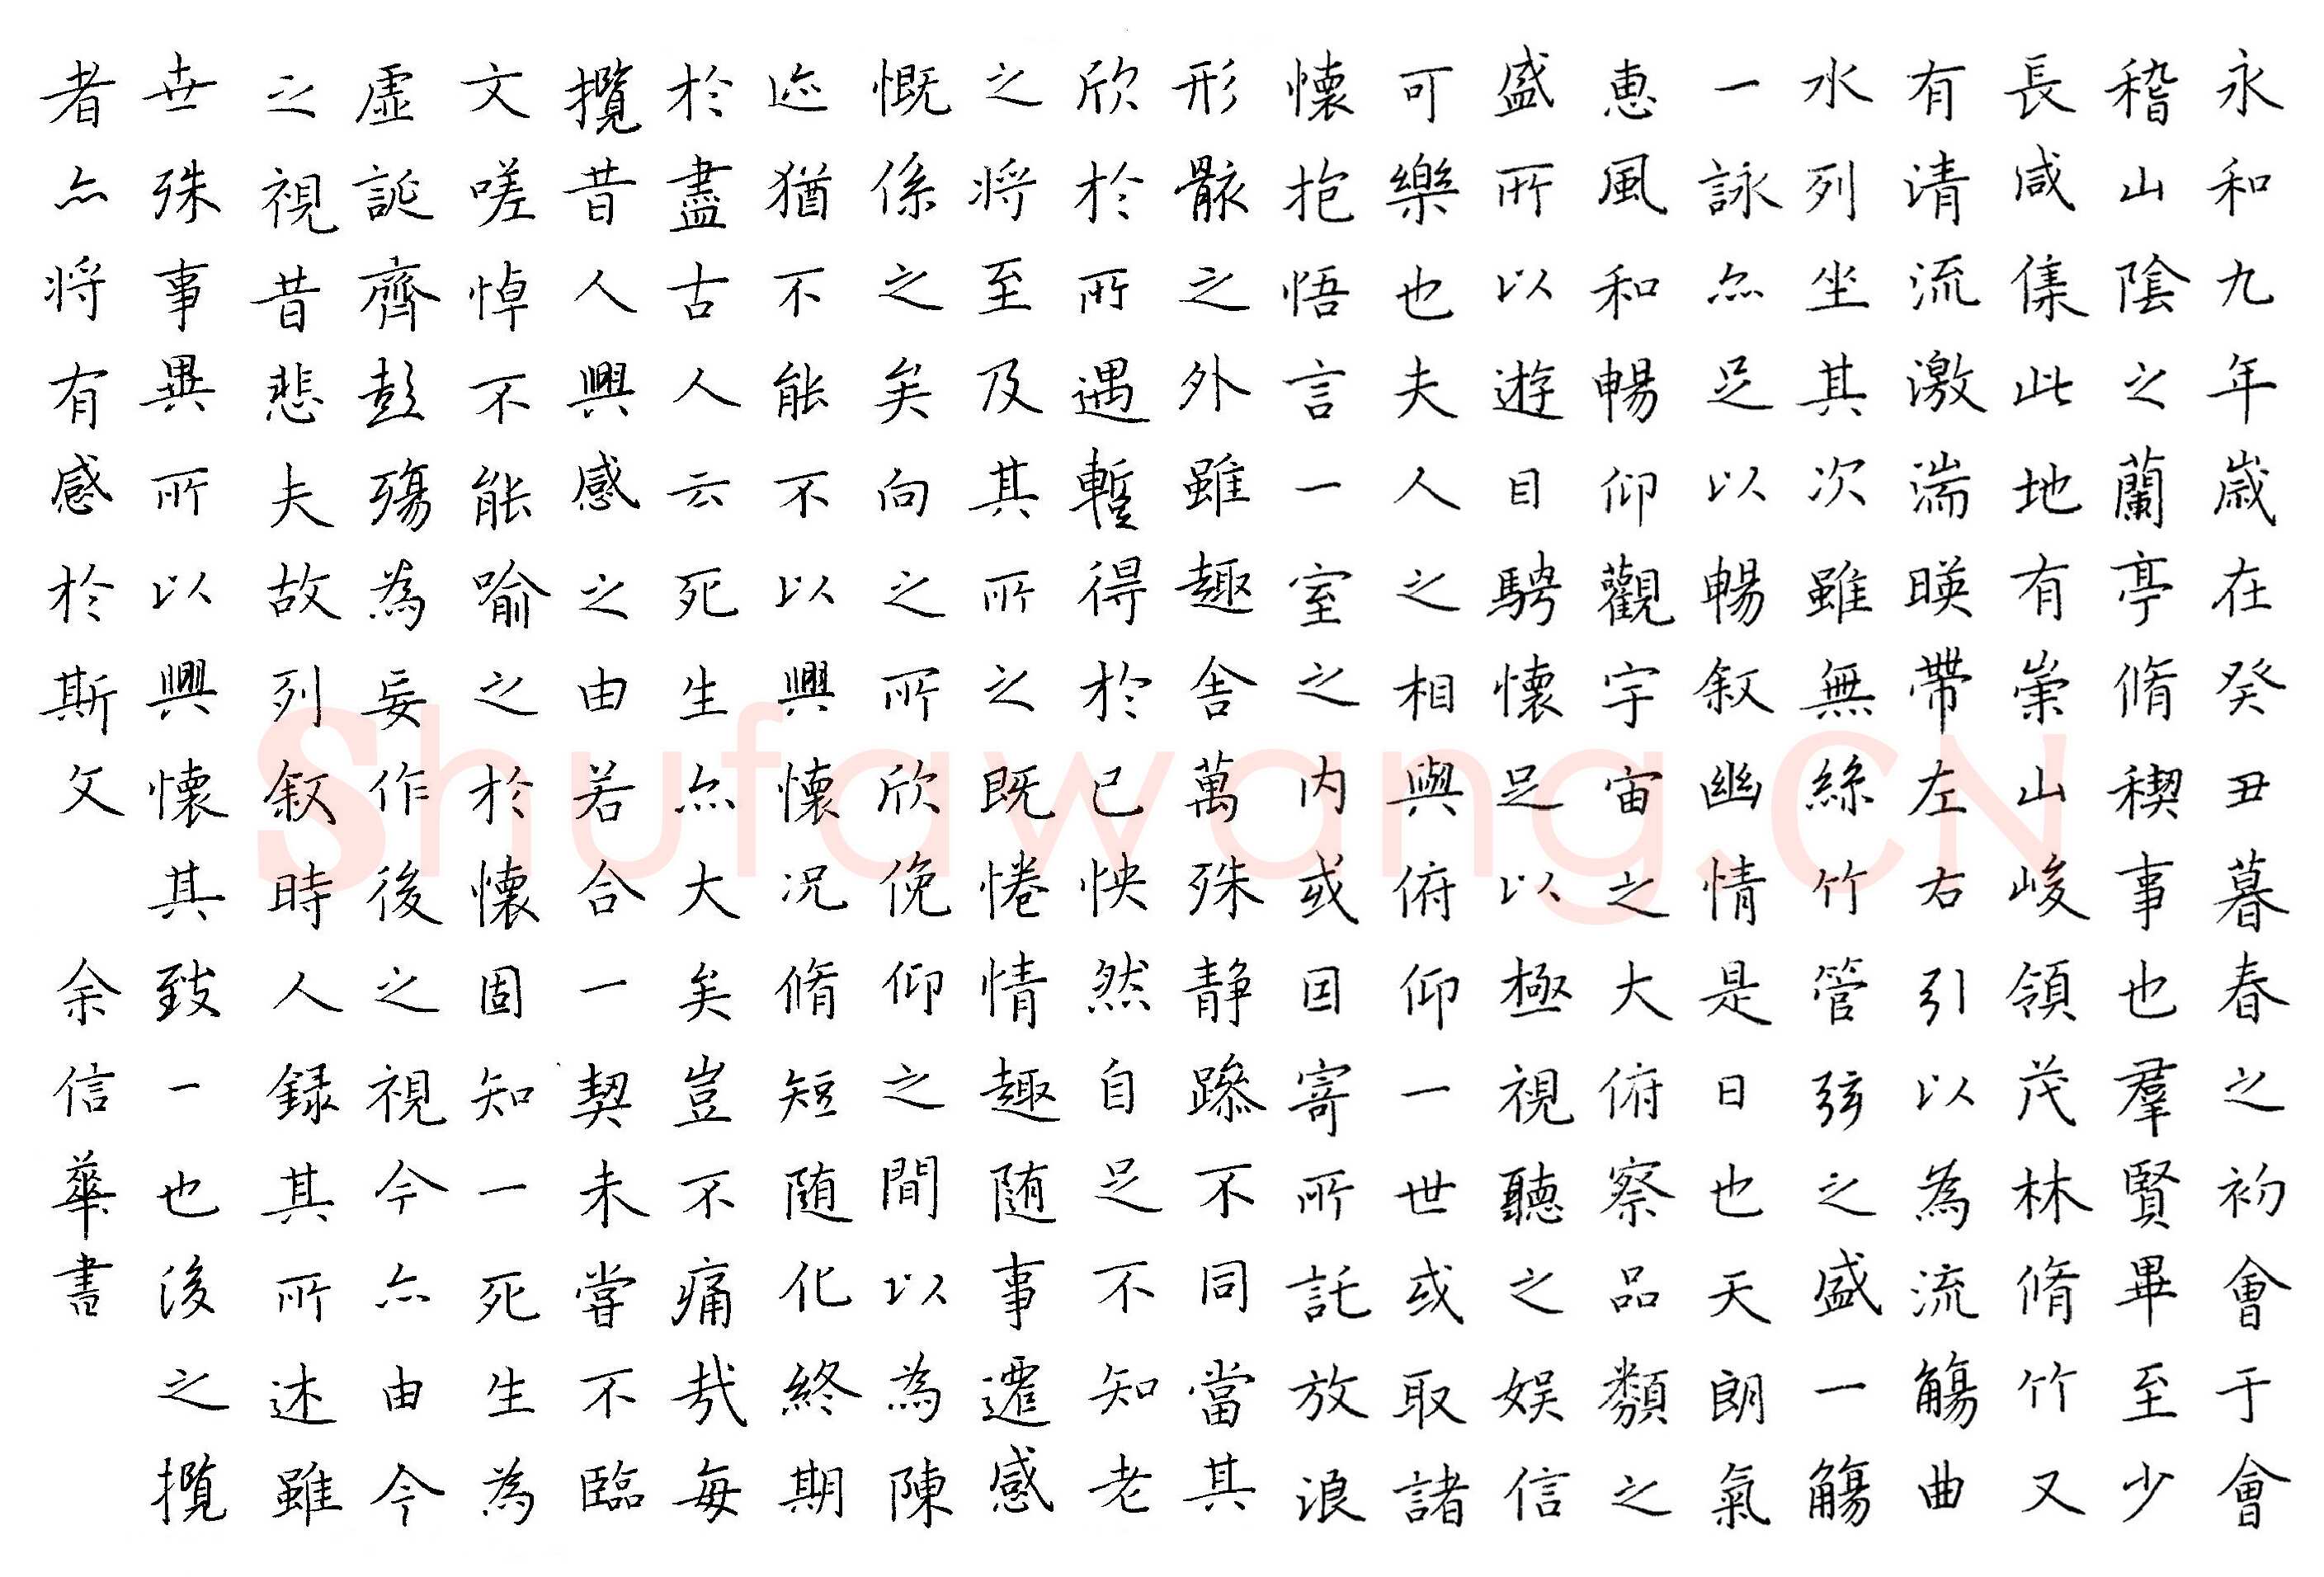 永和九年歲在癸丑暮春之初會于會
稽山陰之蘭亭脩稧事也羣賢畢至少
長咸集此地有崇山峻領茂林脩竹又
有清流激湍暎帶左右引以為流觴曲
水列坐其次雖無絲竹管弦之盛一觴
一詠亦足以暢叙幽情是日也天朗氣
惠風和暢仰觀宇宙之大俯察品類之
盛所以遊目騁懷足以極視聽之娛信
可樂也夫人之相與俯仰一世或取諸
懷抱悟言一室之内或因寄所託放浪
形骸之外雖趣舍萬殊静躁不同當其
欣於所遇暫得於己怏然自足不知老
之將至及其所之既惓情随事遷感
慨係之矣向之所欣俛仰之間以為陳
迹猶不能不以興懷况脩短随化終期
於盡古人云死生亦大矣豈不痛哉每
攬昔人興感之由若合一契未嘗不臨
文嗟悼不能喻之於懷固知一死生為
虛誕齊彭殤為妄作後之視今亦由今
之視昔悲夫故列叙時人録其所述雖
世殊事異所以興懷其致一也後之攬
者亦將有感於斯文 余信華書
Shufawang.CN